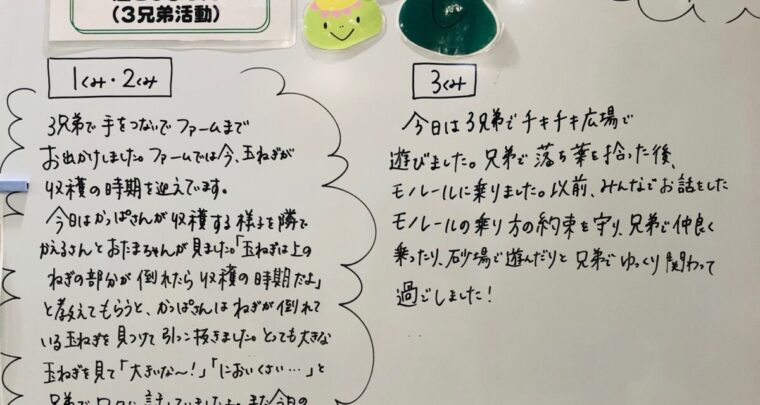 (3兄弟活動)
1くみ・2くみ
3兄弟で手をつないでファームまで
お出かけしました。ファームでは今、玉ねぎが
収穫の時期を迎えています。
今日はかっぱさんが収穫する様子を隣で
かえるさんとおたまちゃんが見ました。「玉ねぎは上の
ねぎの部分が倒れたら収穫の時期だよ」
と教えてもらうと、かっぱさんはねぎが倒れて
いる玉ねぎを見つけて引っこ抜きました。とっても大きな
玉ねぎを見て「大きいな〜!」「においくさい…」と
兄弟で口々に話していました。また今日の
3くみ
今日は3兄弟でチキチキ広場で
遊びました。兄弟で落ち葉を拾った後、
モノレールに乗りました。以前、みんなでお話をした
モノレールの乗り方の約束を守り、兄弟で仲良く
乗ったり、砂場で遊んだりと兄弟でゆっくり関わって
過ごしました!